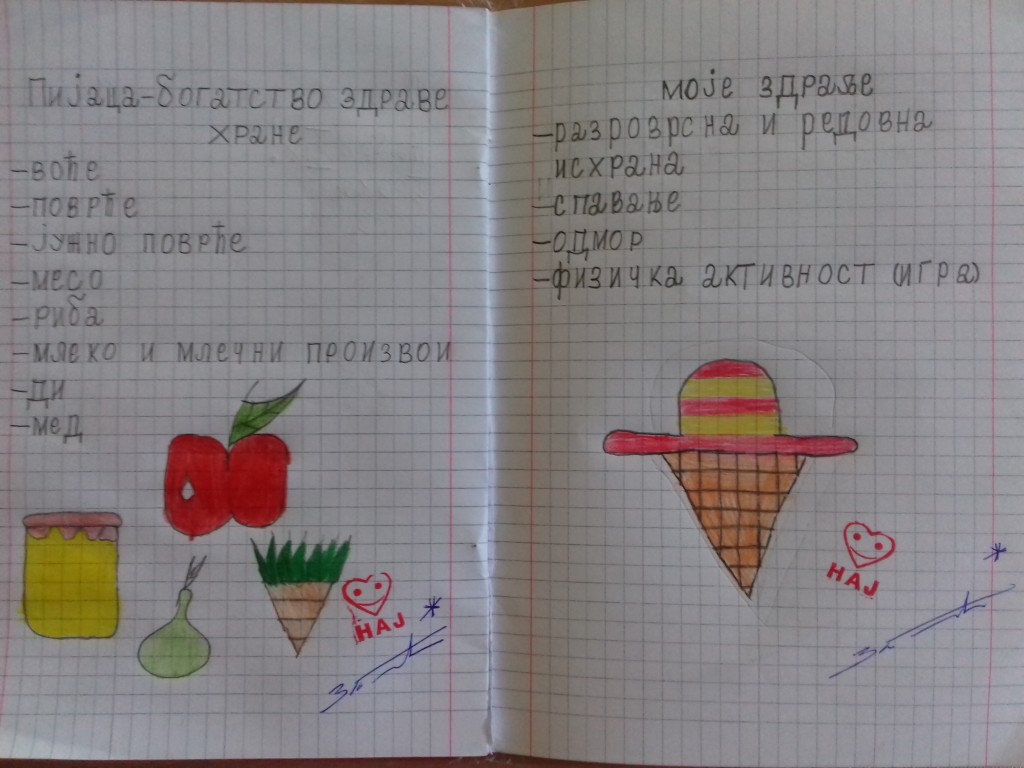 Пијаца-богатство здраве
хране
-воће
-поврће
-јужно поврће
-месо
-риба
-млеко и млечни произвои
-ди
-мед
НАЈ
моје здрање
-разроврсна и редовна
исхрана
-спавање
-одмор
-физичка активност (игра)
НАЈ